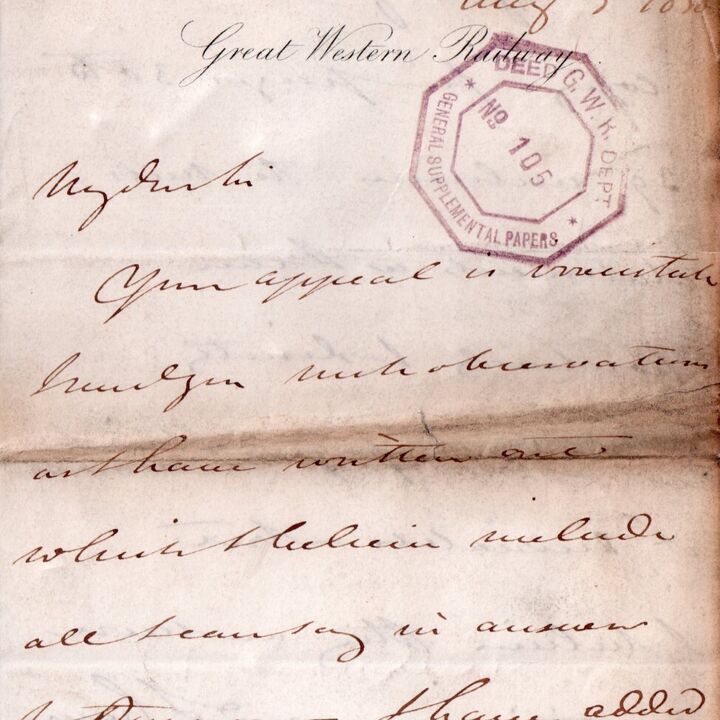 Great Western Railway
G. W. R. DEED DEPT
No 105
GENERAL SUPPLEMENTAL PAPERS
My dear Sir
Your appeal is irresistible
I send you such observations
as I have written out
which I believe include
all I can say in answer
I have added